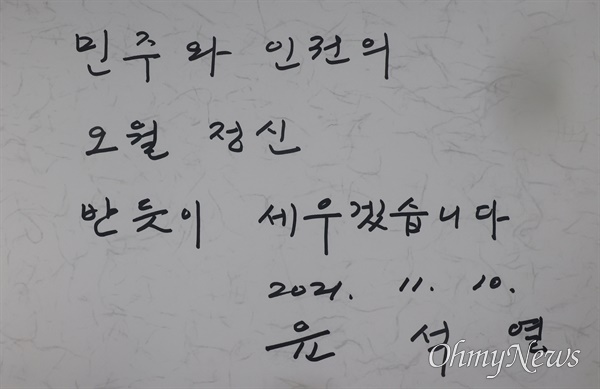 민주와 인권의
오월 정신
반듯이 세우겠습니다
2021. 11. 10.
윤석열
OhmyNews